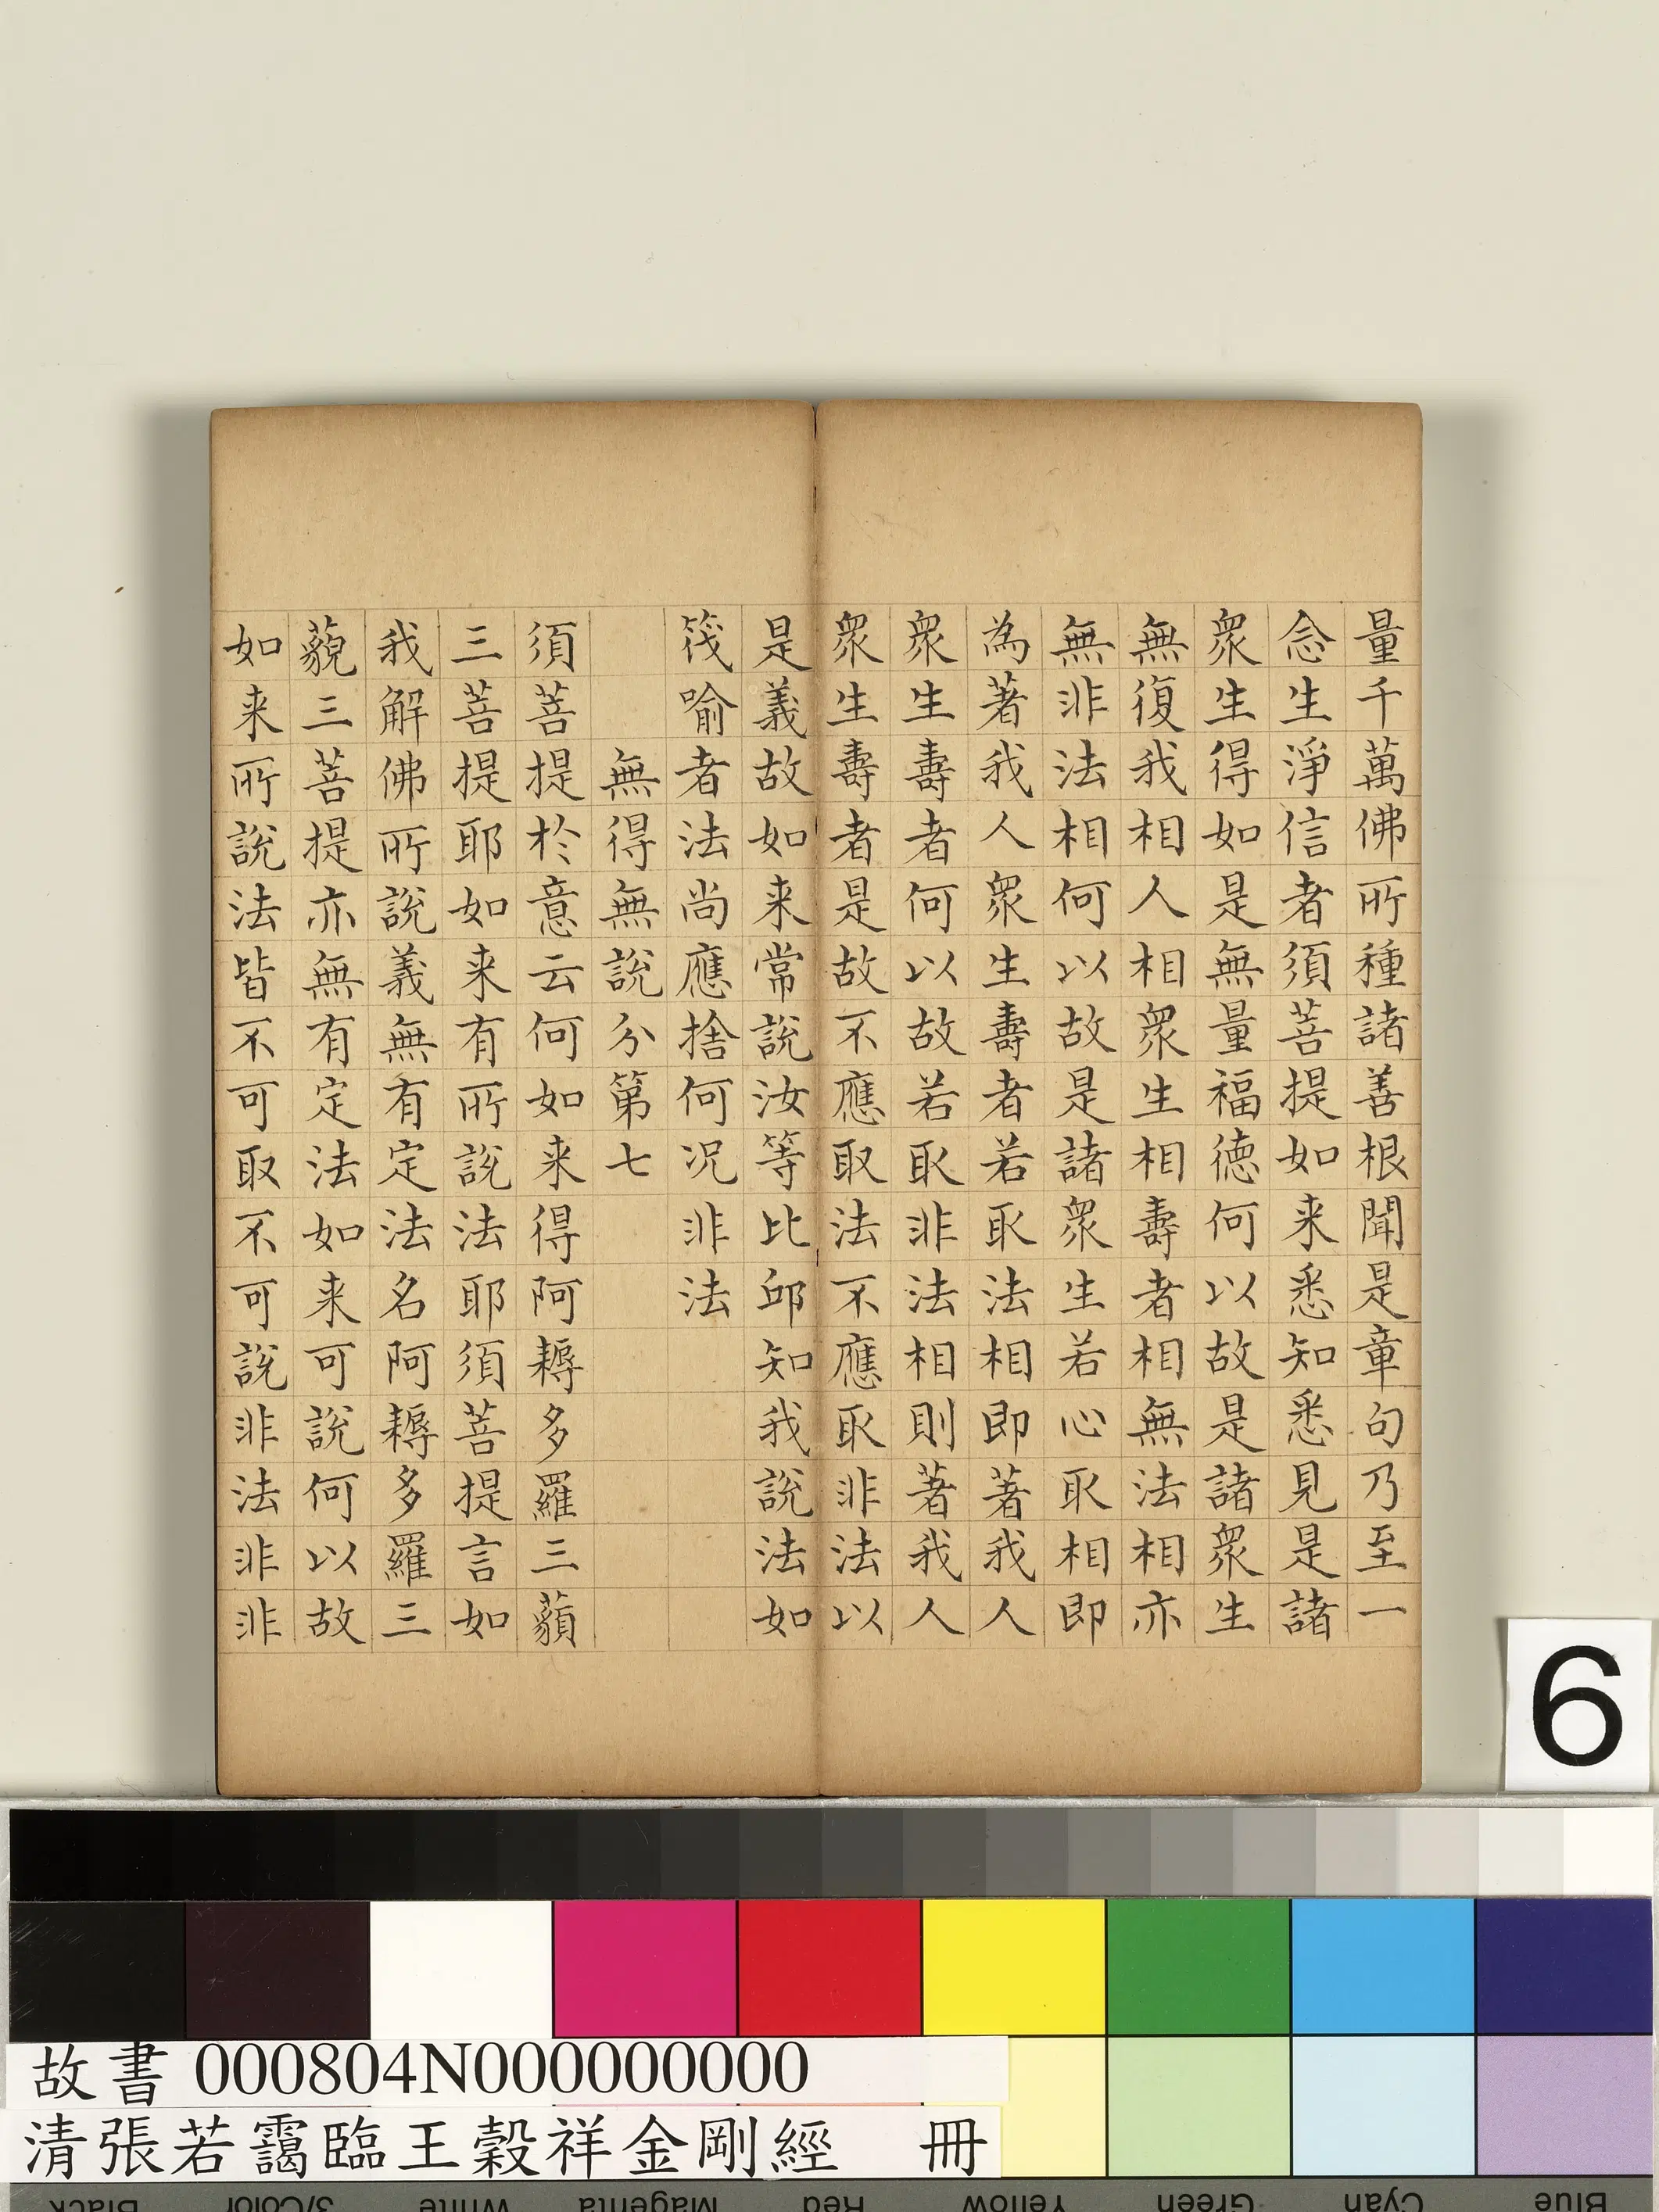 量千萬佛所種諸善根聞是章句乃至一
念生淨信者須菩提如来悉知悉見是諸
衆生得如是無量福德何以故是諸衆生
無復我相人相衆生相壽者相無法相亦
無非法相何以故是諸衆生若心取相即
為著我人衆生壽者若取法相即著我人
衆生壽者何以故若取非法相則著我人
衆生壽者是故不應取法不應取非法以
是義故如来常說汝等比邱知我說法如
筏喻者法尚應捨何况非法
無得無說分第七
須菩提於意云何如来得阿耨多羅三藐
三菩提耶如来有所說法耶須菩提言如
我解佛所說義無有定法名阿耨多羅三
藐三菩提亦無有定法如来可說何以故
如来所說法皆不可取不可說非法非非
6
故書 000804N000000000
清張若靄臨王穀祥金剛經 冊
Black 3/Color White Magenta Red Yellow Green Cyan Blue